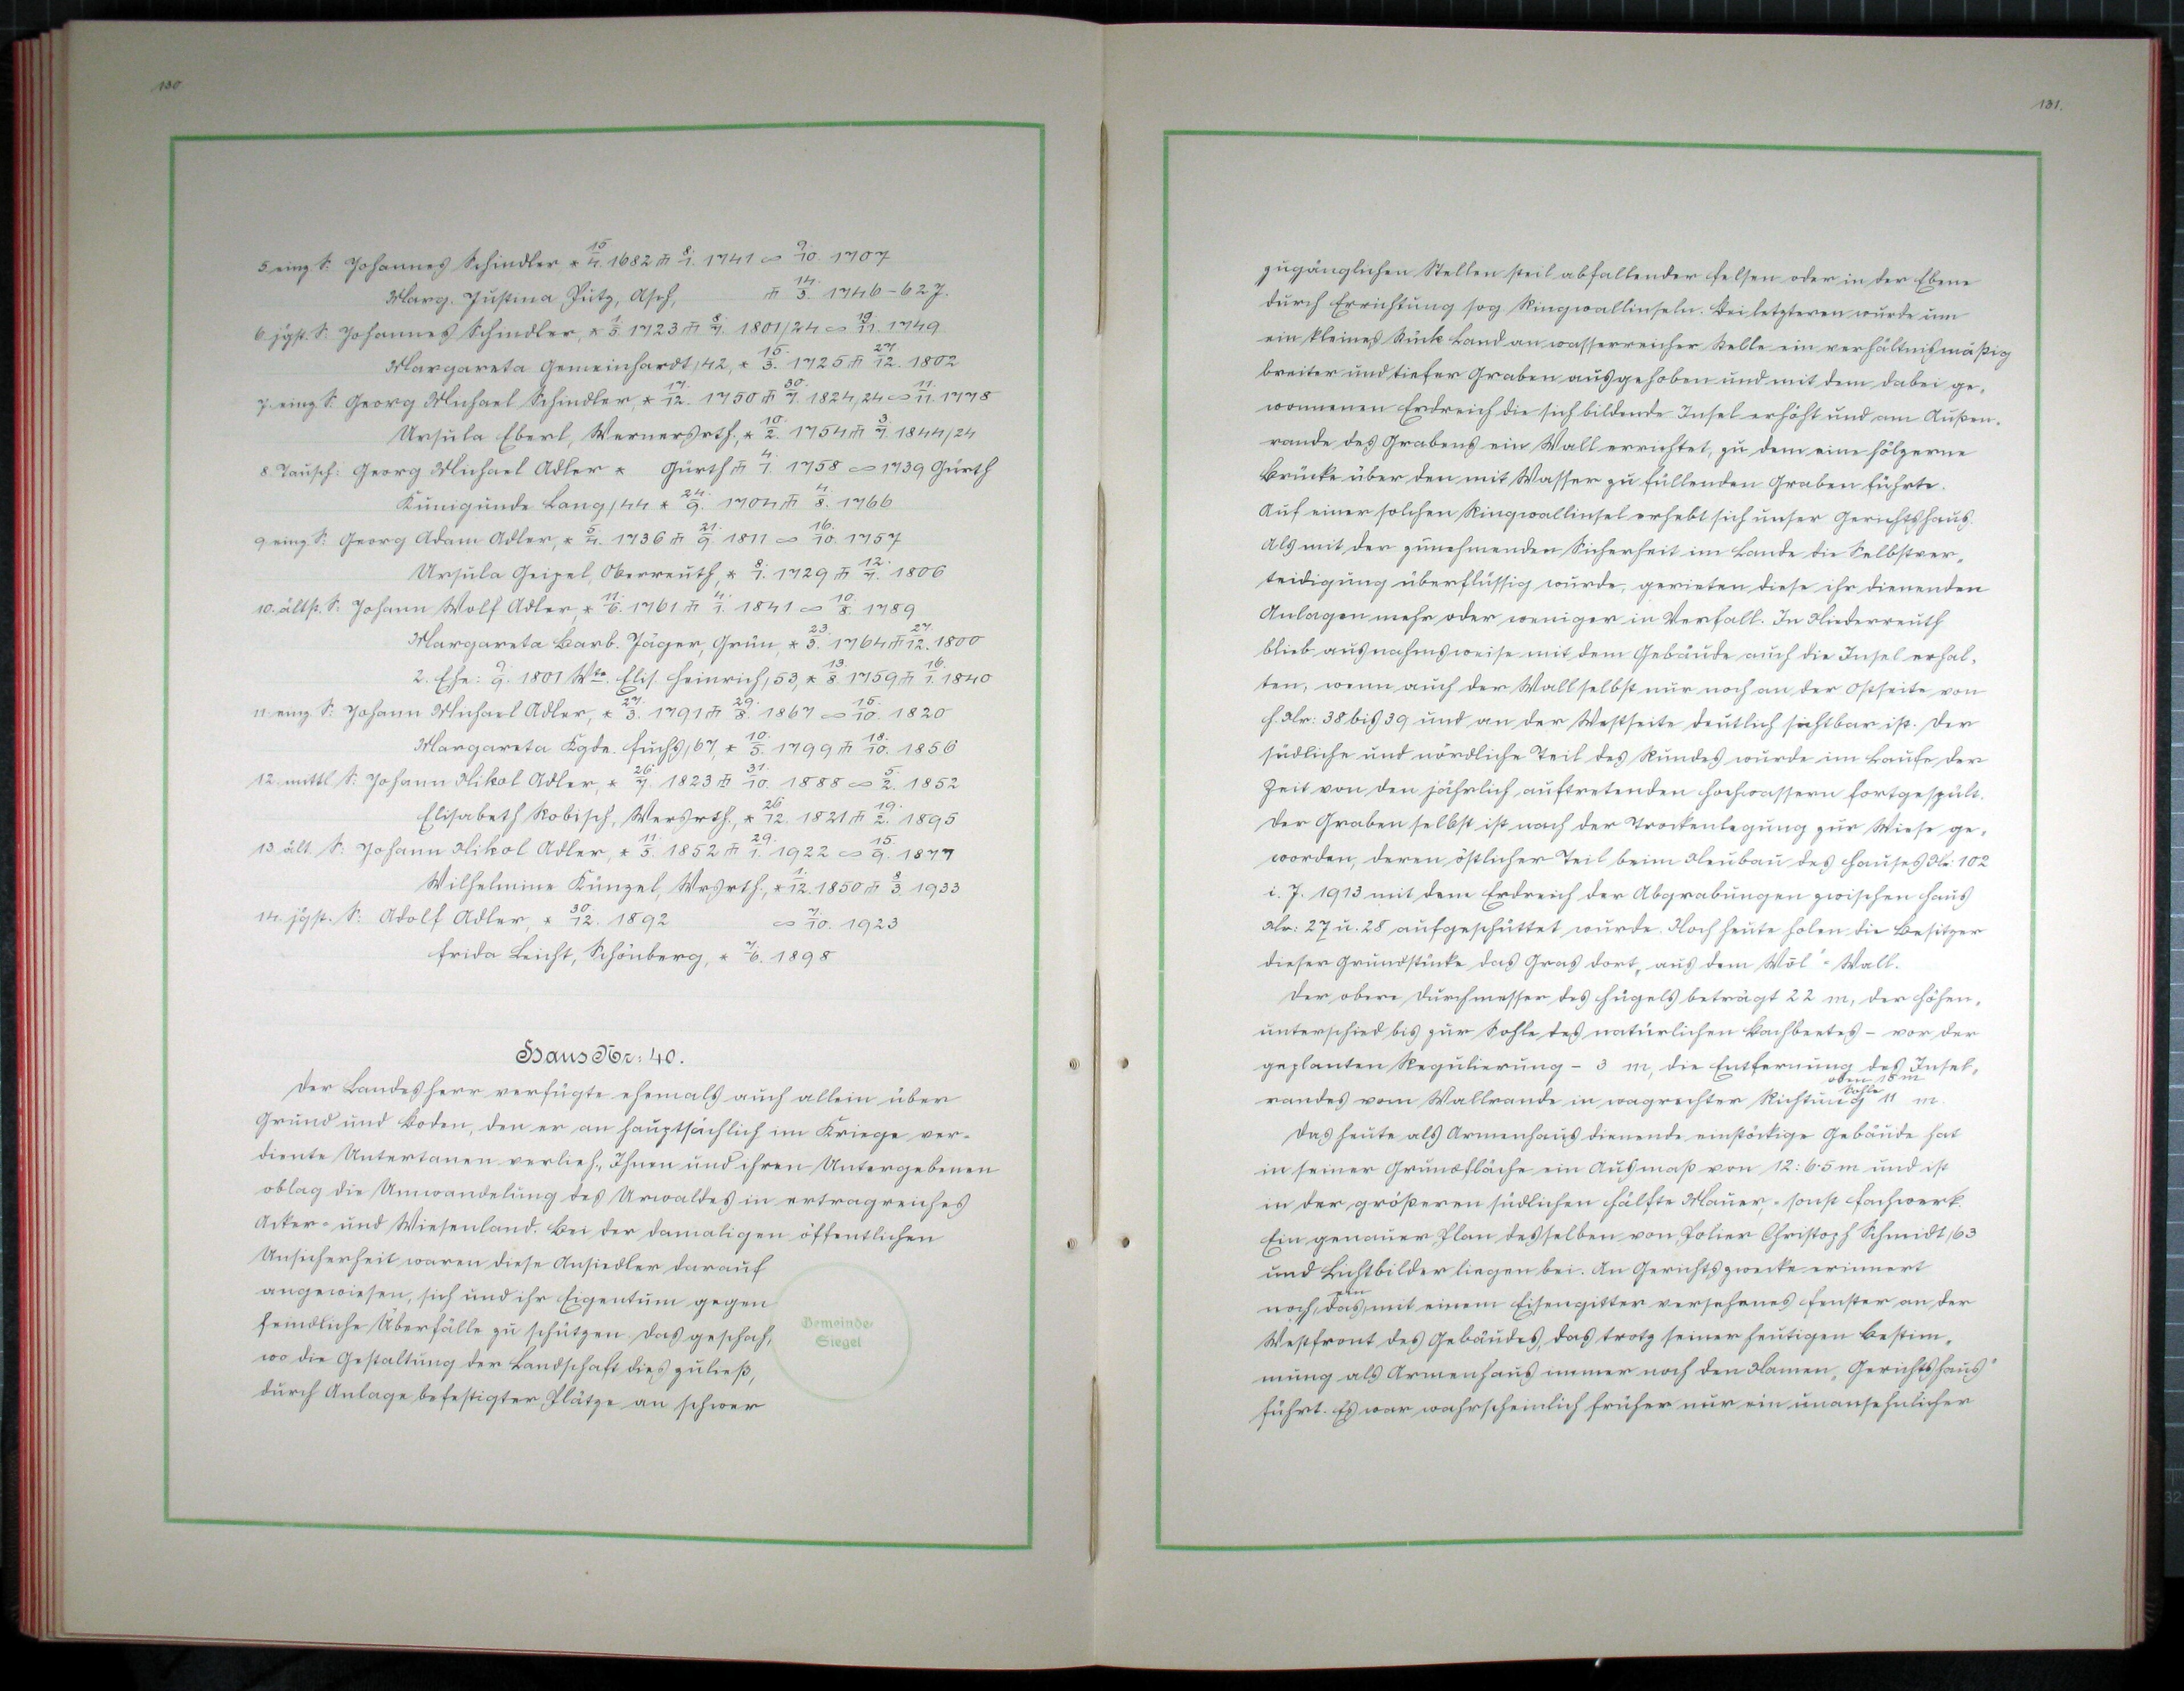 130
5. einz. S: Johannes Schindler * 15./4. 1682 ⚰ 8./1. 1741 ∞ 9./10. 1707
Marg. Justina Putz, Asch, ⚰ 14./3. 1746 - 62 J.
6. jgst. S: Johannes Schindler, * 1./3. 1723 ⚰ 8./7. 1801/24 ∞ 19./11. 1749
Margareta Gemeinhardt/42, * 15./3. 1725 ⚰ 27./12. 1802
7. einz. S: Georg Michael Schindler, * 17./12. 1750 ⚰ 30./7. 1824/24 ∞ 11./11. 1778
Ursula Eberl, Wernersrth., * 10./2. 1754 ⚰ 3./7. 1844/24
8. Tausch: Georg Michael Adler * Gürth ⚰ 4./1. 1758 ∞ 1739 Gürth
Kunigunde Lang/44 * 24./9. 1704 ⚰ 4./8. 1766
9. einz. S: Georg Adam Adler, * 5./4. 1736 ⚰ 21./9. 1811 ∞ 16./10. 1757
Ursula Geipel, Oberreuth, * 8./1. 1729 ⚰ 12./7. 1806
10. ältst. S: Johann Wolf Adler, * 11./6. 1761 ⚰ 4./1. 1841 ∞ 10./8. 1789
Margareta Barb. Jäger, Grün, * 23./3. 1764 ⚰ 27./12. 1800
2. Ehe: 9./9. 1801 Wte. Elis. Heinrich/53, * 13./8. 1759 ⚰ 16./1. 1840
11. einz. S: Johann Michael Adler, * 27./3. 1791 ⚰ 29./8. 1867 ∞ 15./10. 1820
Margareta Kgde. Fuchs/67, * 10./5. 1799 ⚰ 18./10. 1856
12. mittl. S: Johann Nikol Adler, * 26./7. 1823 ⚰ 31./10. 1888 ∞ 5./2. 1852
Elisabeth Robisch, Wersrth., * 26./12. 1821 ⚰ 19./2. 1895
13. ält. S: Johann Nikol Adler, * 11./5. 1852 ⚰ 29./1. 1922 ∞ 15./9. 1877
Wilhelmine Künzel, Wrsrth., * 1./12. 1850 ⚰ 8./3. 1933
14. jgst. S: Adolf Adler, * 30./12. 1892 ∞ 7./10. 1923
Frida Leicht, Schönberg, * 7./6. 1898
Haus Nr: 40.
Der Landesherr verfügte ehemals auch allein über
Grund und Boden, den er an hauptsächlich im Kriege ver-
diente Untertanen verlieh. Ihnen und ihren Untergebenen
oblag die Umwandelung des Urwaldes in ertragreiches
Acker- und Wiesenland. Bei der damaligen öffentlichen
Unsicherheit waren diese Ansiedler darauf
angewiesen, sich und ihr Eigentum gegen
feindliche Überfälle zu schützen. Das geschah,
wo die Gestaltung der Landschaft dies zuließ,
durch Anlage befestigter Plätze an schwer
Gemeinde-
Siegel
131.
zugänglichen Stellen steil abfallender Felsen oder in der Ebene
durch Errichtung sog. Ringwallinseln. Bei letzteren wurde um
ein kleines Stück Land an wasserreicher Stelle ein verhältnismäßig
breiter und tiefer Graben ausgehoben und mit dem dabei ge-
wonnenen Erdreich die sich bildende Insel erhöht und am Außen-
rande des Grabens ein Wall errichtet, zu dem eine hölzerne
Brücke über den mit Wasser zu füllenden Graben führte.
Auf einer solchen Ringwallinsel erhebt sich unser Gerichtshaus.
Als mit der zunehmenden Sicherheit im Lande die Selbstver-
teidigung überflüssig wurde, gerieten diese ihr dienenden
Anlagen mehr oder weniger in Verfall. In Niederreuth
blieb ausnahmsweise mit dem Gebäude auch die Insel erhal-
ten, wenn auch der Wall selbst nur noch an der Ostseite von
H. Nr: 38 bis 39 und an der Westseite deutlich sichtbar ist. Der
südliche und nördliche Teil des Rundes wurde im Laufe der
Zeit von den jährlich auftretenden Hochwassern fortgespült.
Der Graben selbst ist nach der Trockenlegung zur Wiese ge-
worden, deren östlicher Teil beim Neubau des Hauses Nr: 102
i. J. 1913 mit dem Erdreich der Abgrabungen zwischen Haus
Nr: 27 u. 28 aufgeschüttet wurde. Noch heute holen die Besitzer
dieser Grundstücke das Gras dort „aus dem Wöl" = Wall.
Der obere Durchmesser des Hügels beträgt 22 m, der Höhen-
unterschied bis zur Sohle des natürlichen Bachbettes - vor der
geplanten Regulierung - 3 m, die Entfernung des Insel-
oben 18 m
randes vom Wallrande in wagrechter Richtung Sohle 11 m.
Das heute als Armenhaus dienende einstöckige Gebäude hat
in seiner Grundfläche ein Ausmaß von 12:6·5 m und ist
in der größeren südlichen Hälfte Mauer-, sonst Fachwerk.
Ein genauer Plan desselben von Polier Christoph Schmidt/63
und Lichtbilder liegen bei. An Gerichtszwecke erinnert
ein
noch, das, mit einem Eisengitter versehenes Fenster an der
Westfront des Gebäudes, das trotz seiner heutigen Bestim-
mung als Armenhaus immer noch den Namen „Gerichtshaus"
führt. Es war wahrscheinlich früher nur ein unansehnlicher